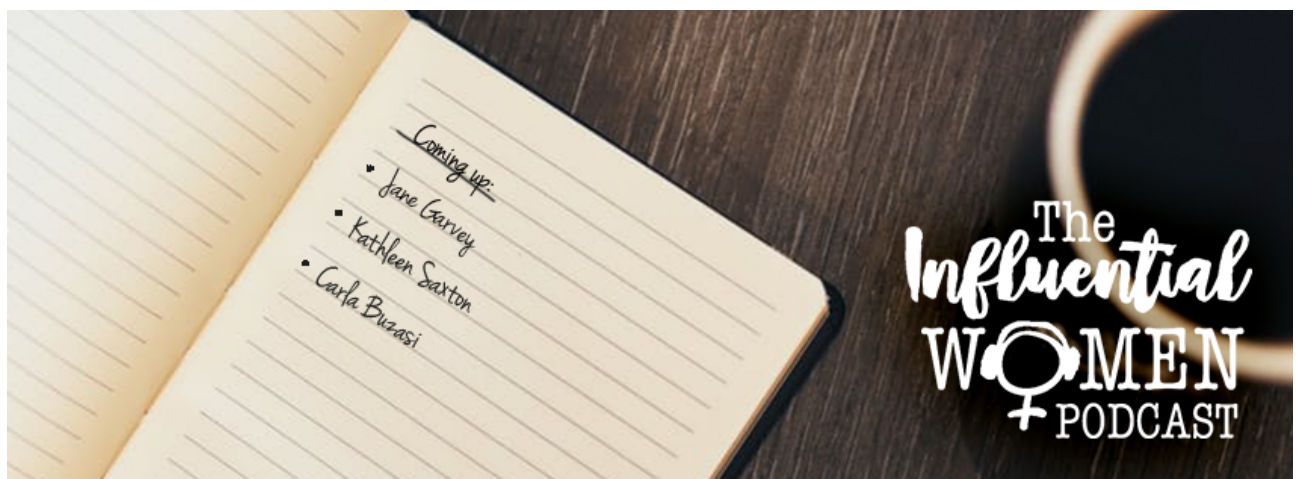 Coming up:
Jane Garvey
Kathleen Saxton
Carla Buzasi
The
Influential
WOMEN
PODCAST